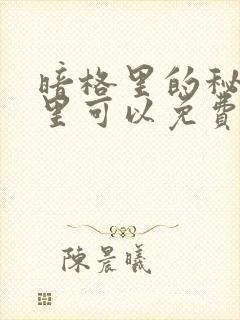 暗格里的秘
里可以免费
陳晨曦